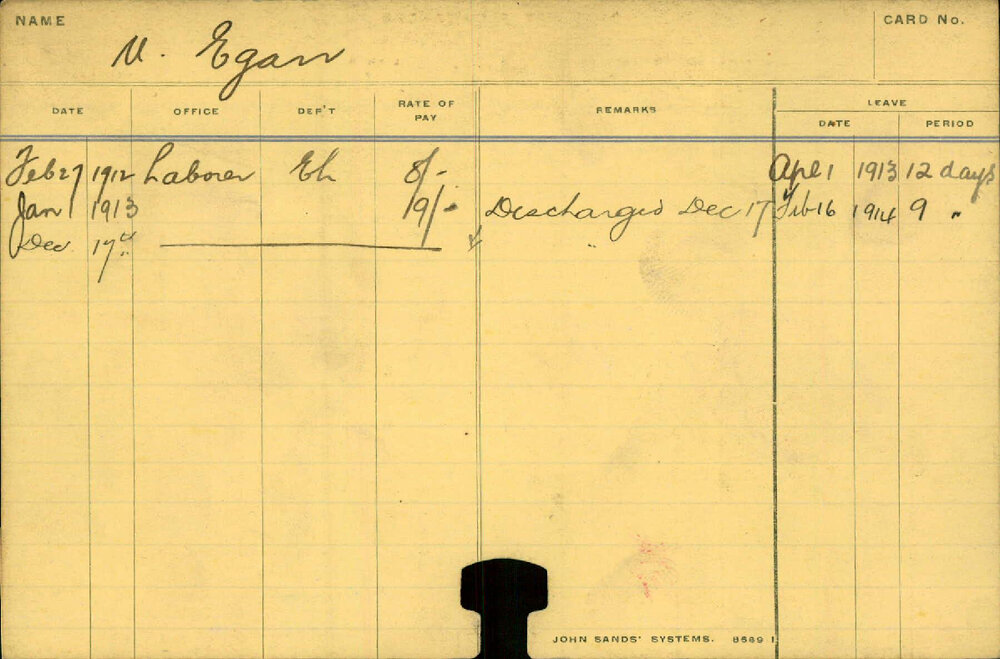 NAME
CARD No.
M. Egan
DATE OFFICE DEP'T RATE OF PAY REMARKS LEAVE
DATE PERIOD
Feb 27 1912 Laborer Eh 8/- Apl 1 1913 12 days
Jan 1 1913 9/- Discharged Dec 17 Feb 16 1914 9 "
Dec 17 "
JOHN SANDS' SYSTEMS. 8689 1